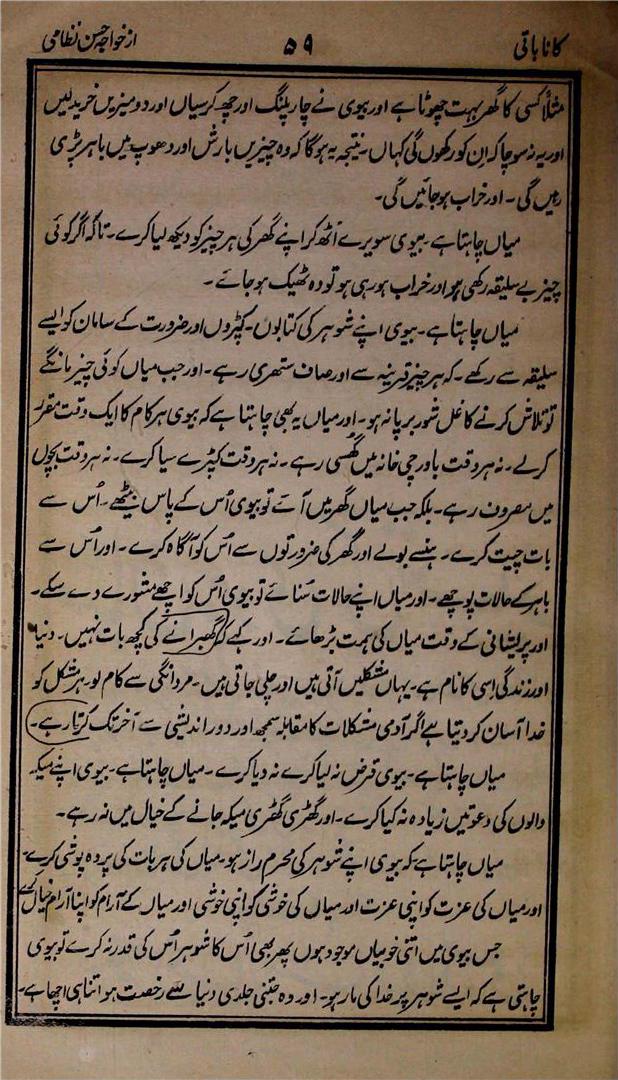 کانا باتی ۵۹ از خواجہ حسن نظامی
مثلاً کسی کا گھر بہت چھوٹا ہے اور بیوی نے چار پلنگ اور چھ کرسیاں اور دو میزیں خرید لیں
اور یہ نہ سوچا کہ اِن کو رکھوں گی کہاں۔ نتیجہ یہ ہوگا کہ وہ چیزیں بارش اور دھوپ میں باہر پڑی
رہیں گی۔ اور خراب ہو جائیں گی۔
میاں چاہتا ہے۔ بیوی سویرے اُٹھ کر اپنے گھر کی ہر چیز کو دیکھ لیا کرے۔ تاکہ اگر کوئی
چیز بے سلیقہ رکھی ہو اور خراب ہو رہی ہو تو وہ ٹھیک ہو جائے۔
میاں چاہتا ہے۔ بیوی اپنے شوہر کی کتابوں۔ کپڑوں اور ضرورت کے سامان کو ایسے
سلیقہ سے رکھے۔ کہ ہر چیز قرینہ سے اور صاف ستھری رہے۔ اور جب میاں کوئی چیز مانگے
تو تلاش کرنے کا غل شور برپا نہ ہو۔ اور میاں یہ بھی چاہتا ہے کہ بیوی ہر کام کا ایک وقت مقرر
کرلے۔ نہ ہر وقت باورچی خانہ میں گھسی رہے۔ نہ ہر وقت کپڑے سیا کرے۔ نہ ہر وقت بچوں
میں مصروف رہے۔ بلکہ جب میاں گھر میں آئے تو بیوی اُس کے پاس بیٹھے۔ اُس سے
بات چیت کرے۔ ہنسے بولے اور گھر کی ضرورتوں سے اُس کو آگاہ کرے۔ اور اُس سے
باہر کے حالات پوچھے۔ اور میاں اپنے حالات سُنائے تو بیوی اُس کو اچھے مشورے دے سکے۔
اور پریشانی کے وقت میاں کی ہمت بڑھائے۔ اور کہے کہ گھبرانے کی کچھ بات نہیں۔ دنیا
اور زندگی اِسی کا نام ہے۔ یہاں مشکلیں آتی ہیں اور چلی جاتی ہیں۔ مردانگی سے کام لو۔ ہر مشکل کو
خدا آسان کر دیتا ہے اگر آدمی مشکلات کا مقابلہ سمجھ اور دور اندیشی سے آخر تک کرتا رہے۔
میاں چاہتا ہے۔ بیوی قرض نہ لیا کرے نہ دیا کرے۔ میاں چاہتا ہے۔ بیوی اپنے میکہ
والوں کی دعوتیں زیادہ نہ کیا کرے۔ اور گھڑی گھڑی میکہ جانے کے خیال میں نہ رہے۔
میاں چاہتا ہے کہ بیوی اپنے شوہر کی محرم راز ہو۔ میاں کی ہر بات کی پردہ پوشی کرے۔
اور میاں کی عزت کو اپنی عزت اور میاں کی خوشی کو اپنی خوشی اور میاں کے آرام کو اپنا آرام خیال کرے
جس بیوی میں اتنی خوبیاں موجود ہوں پھر بھی اُس کا شوہر اُس کی قدر نہ کرے تو بیوی
چاہتی ہے کہ ایسے شوہر پر خدا کی مار ہو۔ اور وہ جتنی جلدی دنیا سے رخصت ہو اتنا ہی اچھا ہے۔